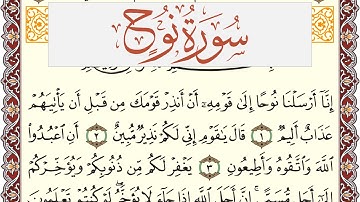 سُورَةُ نُوحٍ
إِنَّآ أَرْسَلْنَا نُوحًا إِلَىٰ قَوْمِهِۦٓ أَنْ أَنذِرْ قَوْمَكَ مِن قَبْلِ أَن يَأْتِيَهُمْ
عَذَابٌ أَلِيمٌ ١ قَالَ يَٰقَوْمِ إِنِّى لَكُمْ نَذِيرٌ مُّبِينٌ ٢ أَنِ ٱعْبُدُوا۟
ٱللَّهَ وَٱتَّقُوهُ وَأَطِيعُونِ ٣ يَغْفِرْ لَكُم مِّن ذُنُوبِكُمْ وَيُؤَخِّرْكُمْ
إِلَىٰٓ أَجَلٍ مُّسَمًّى ۚ إِنَّ أَجَلَ ٱللَّهِ إِذَا جَآءَ لَا يُؤَخَّرُ ۖ لَوْ كُنتُمْ تَعْلَمُونَ